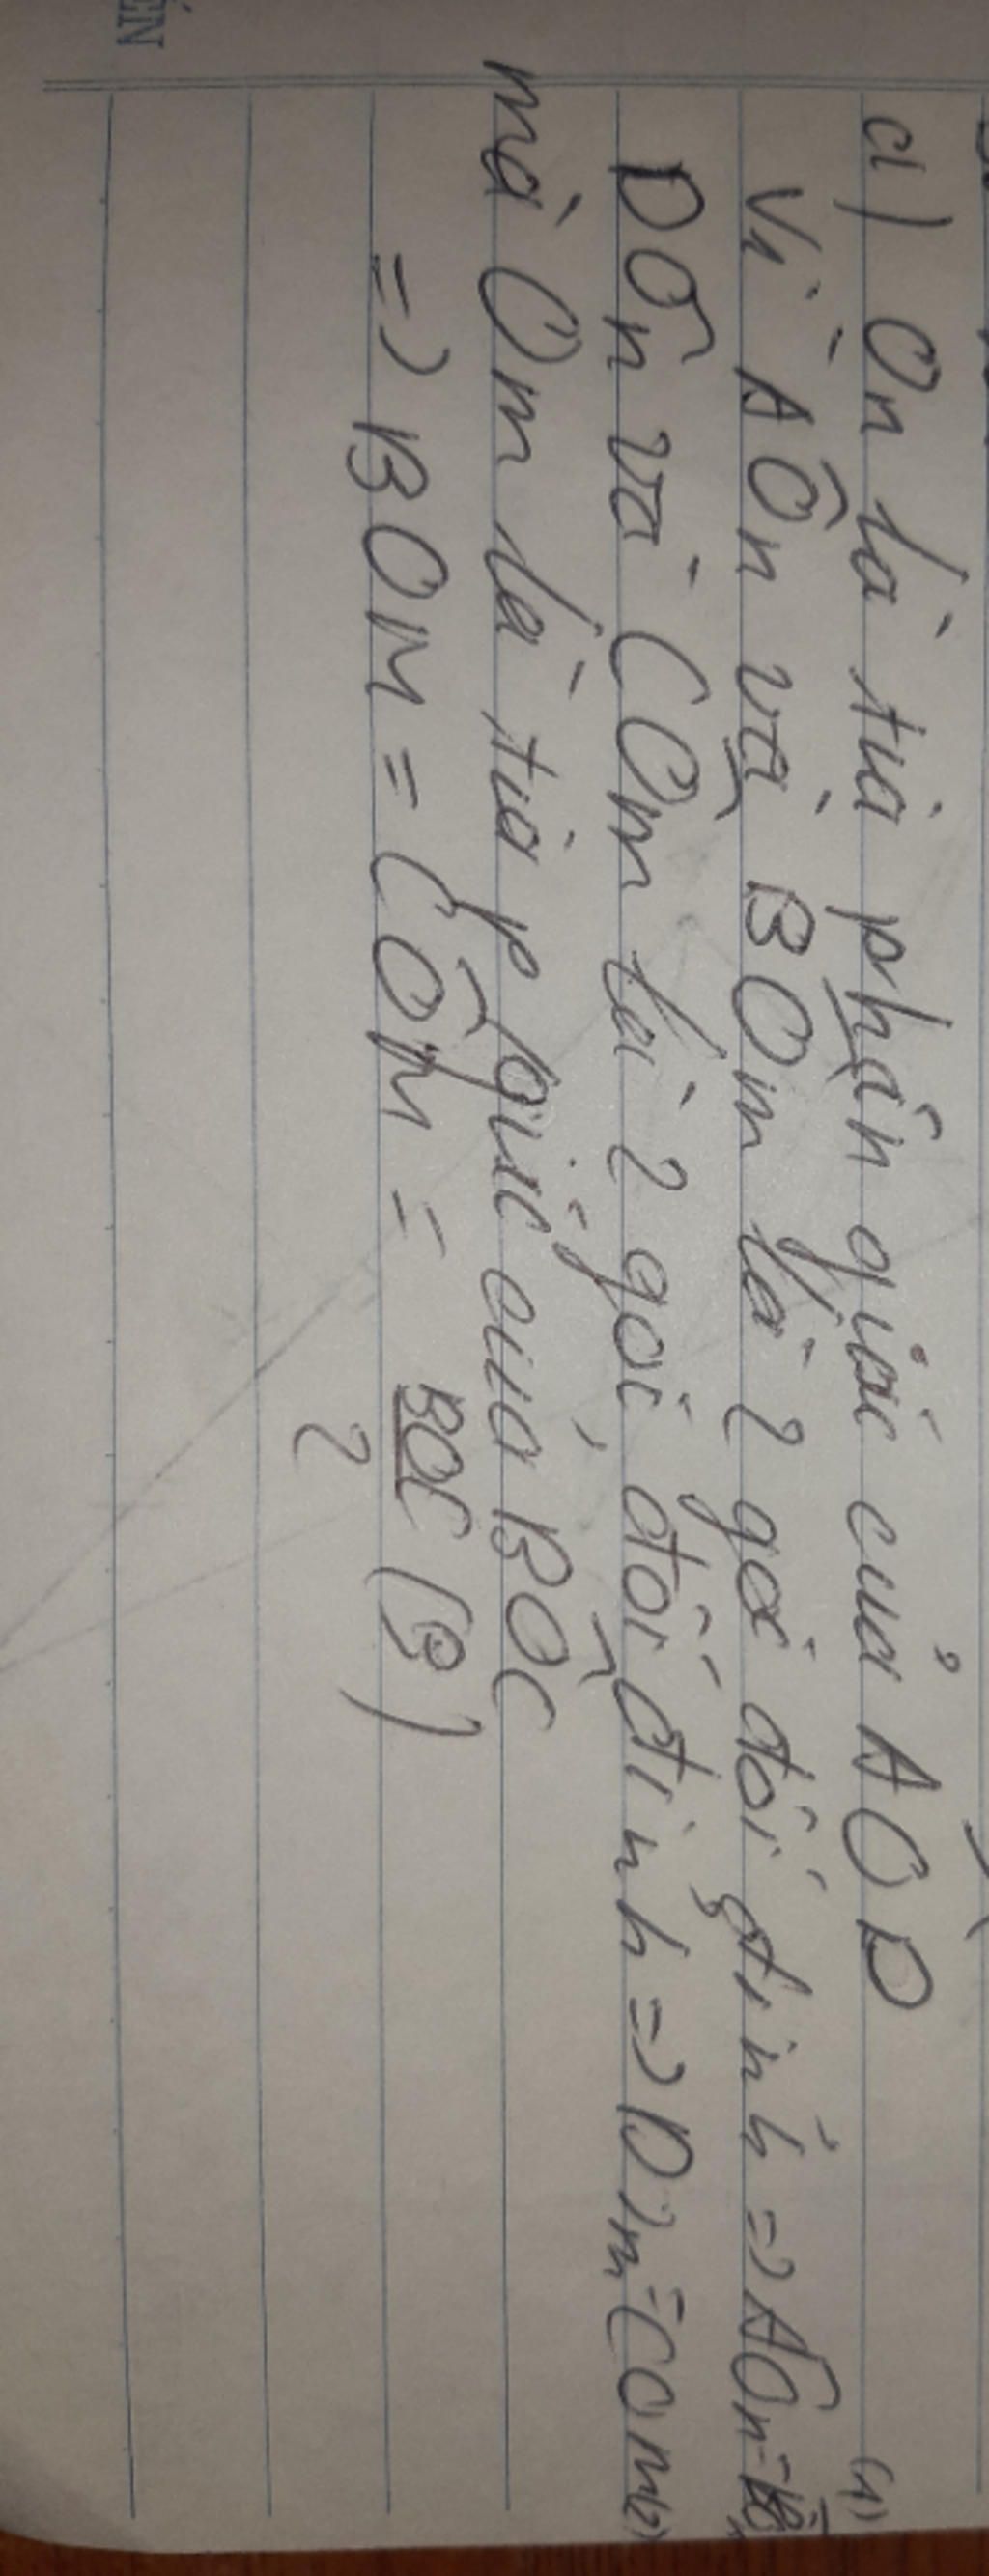 d) On là tia phân giác của AOD
Vì AÔn và BOm là 2 góc đối đỉnh => AÔn =
(1)
DÔn và COm là 2 góc đối đỉnh => DOn = COm (2)
mà Om là tia p giác của BOC
=> BOM = COM = BOC (3)
2
ỂN